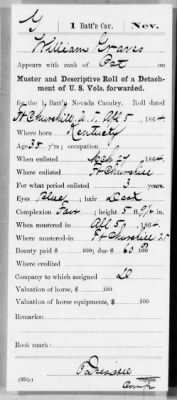 G | 1 Batt'n Cav. | Nev.
William Graves
Appears with rank of Pvt on
Muster and Descriptive Roll of a Detach-
ment of U. S. Vols. forwarded.
for the 1 Batt'n Nevada Cavalry. Roll dated
Ft Churchill N. T. 5, 1864.
Where born Kentucky
Age 35 y'rs; occupation
When enlisted 27, 1864.
Where enlisted Ft Churchill
For what period enlisted 3 years.
Eyes Blue; hair Dark
Complexion Fair; height 5 ft. in.
When mustered in 5, 1864.
Where mustered in Ft Churchill N.T.
Bounty paid $ 100; due $ 60 100
Where credited
Company to which assigned D
Valuation of horse, $ 100
Valuation of horse equipments, $ 100
Remarks:
Book mark: